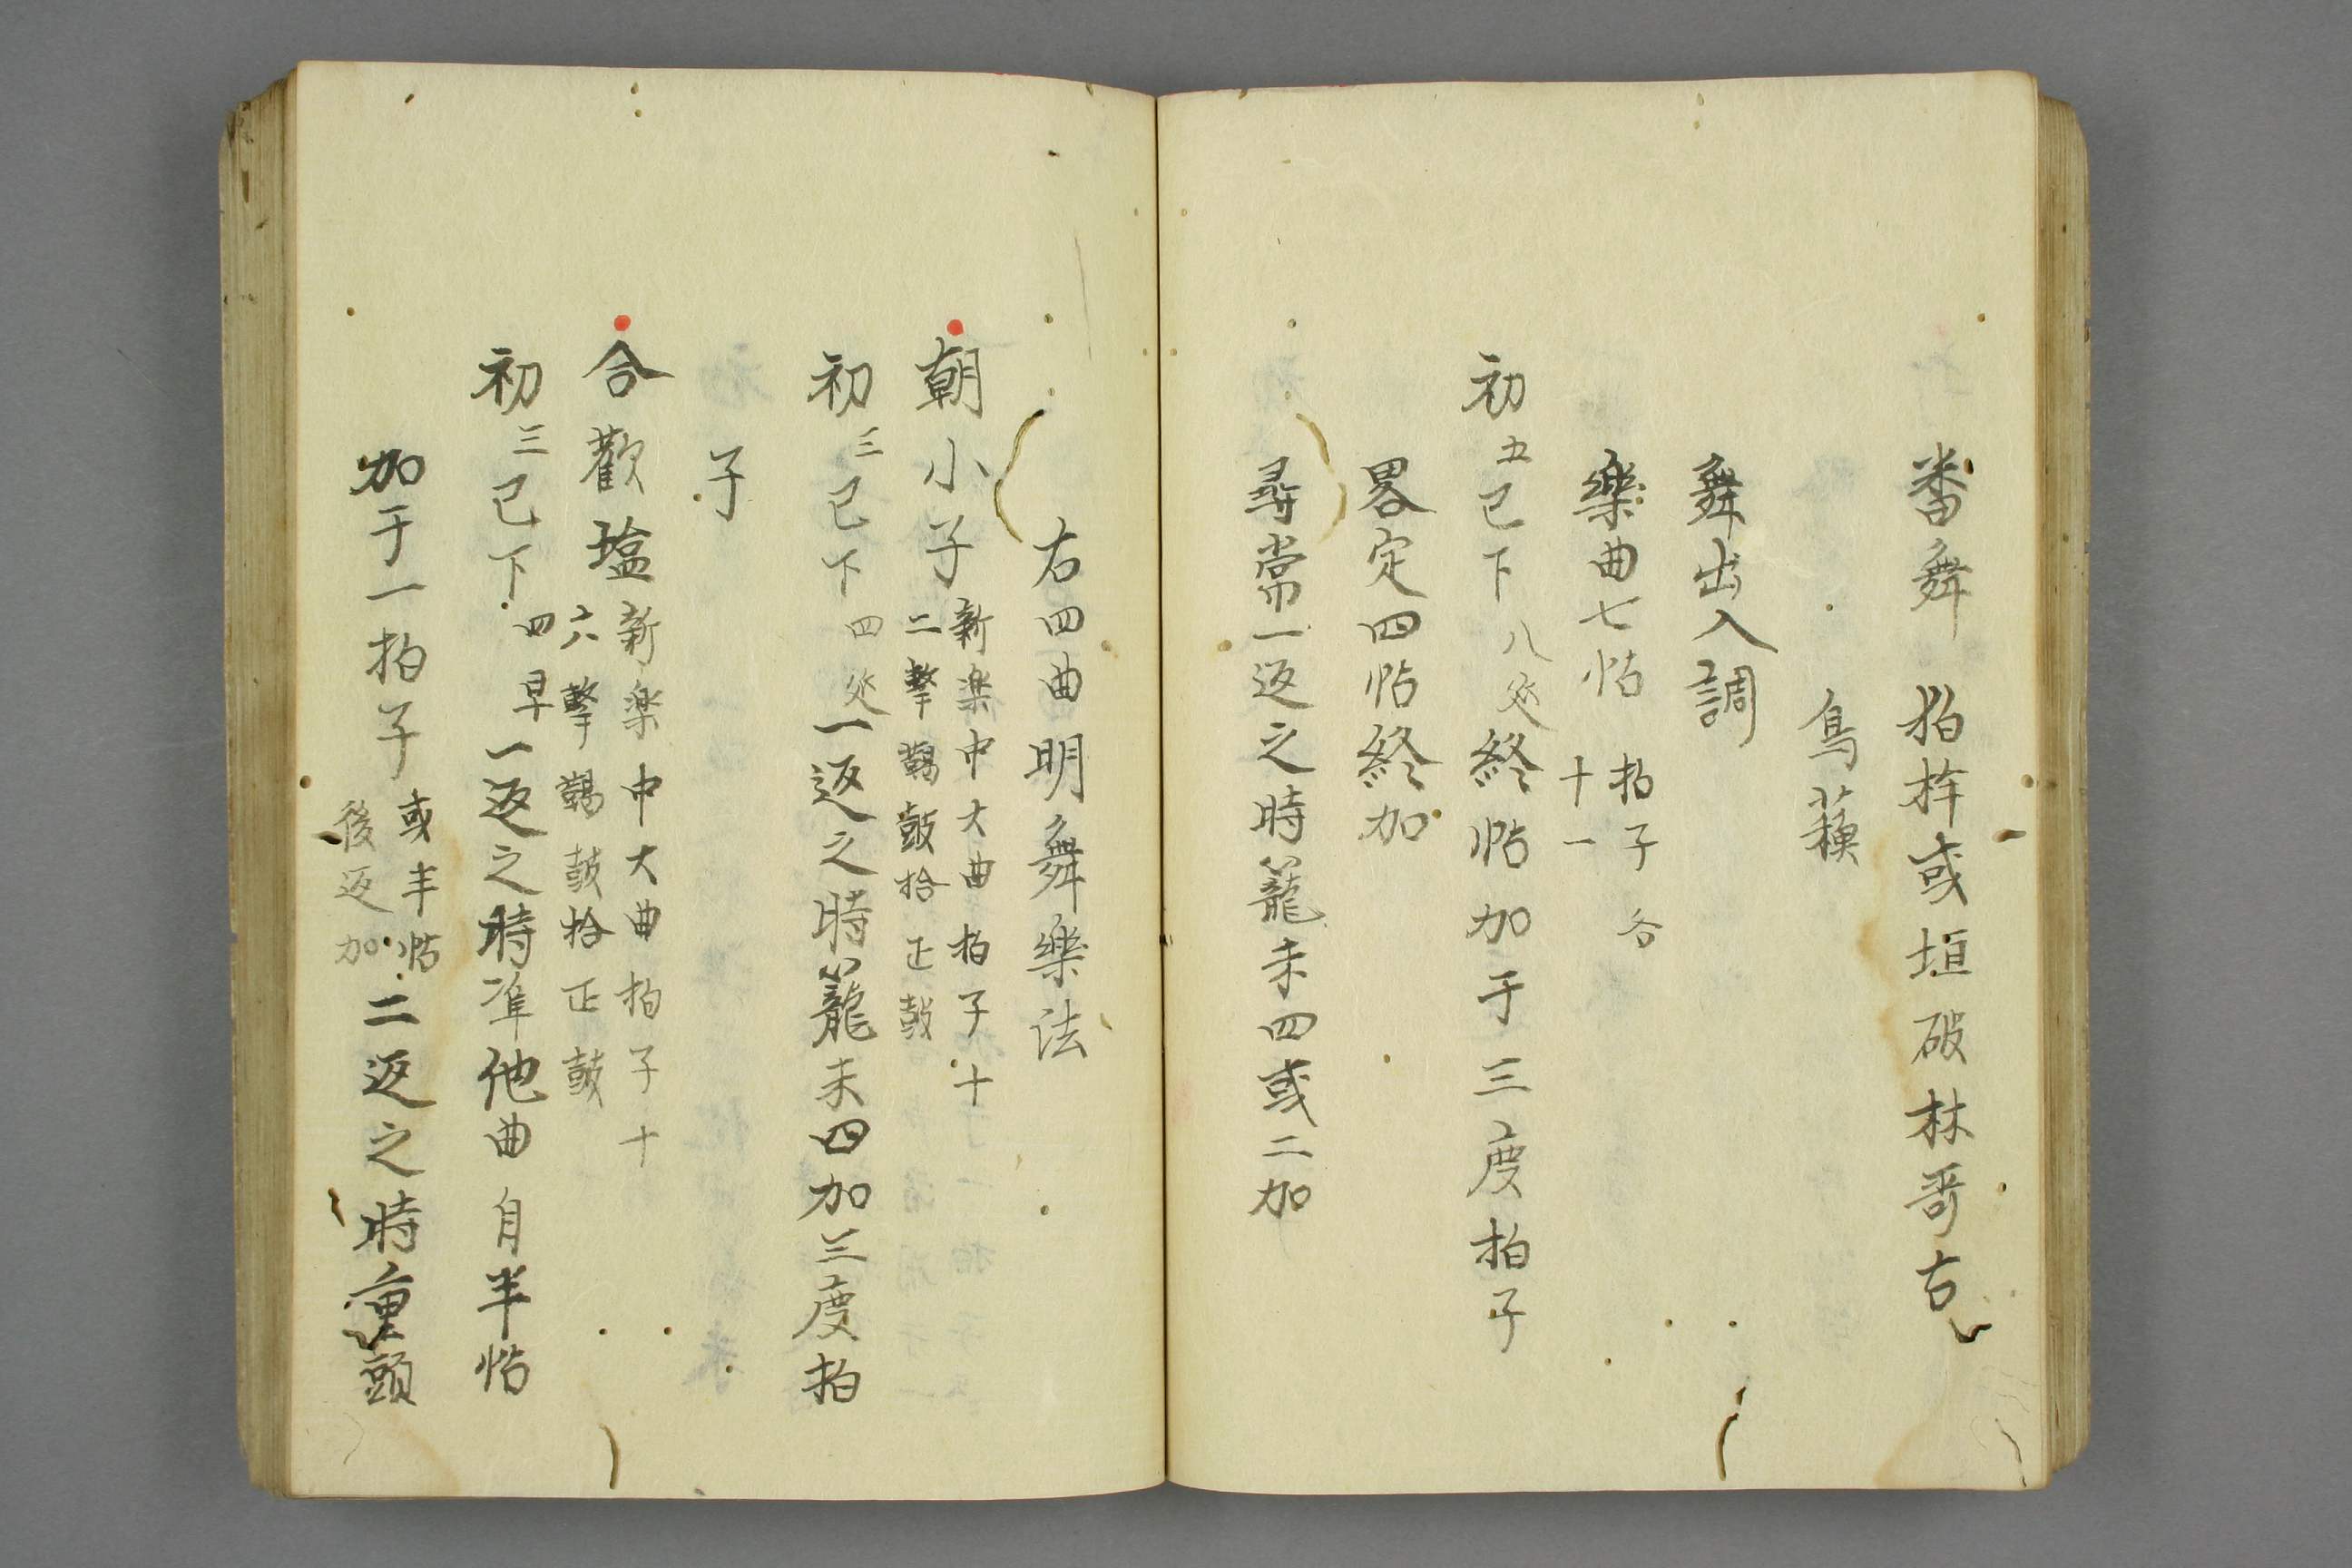 番舞 狛桙或垣破林哥古
鳥蘓
舞出入調
樂曲七帖 拍子各
十一
初五已下八処終帖加于三度拍子
畧定四帖終加
尋常一返之時籠末四或二加
右四曲明舞樂法
朝小子 新楽中大曲拍子十
二撃鞨鼓拾正鼓
初三已下四処一返之時籠末四加三度拍
子
合歡塩 新楽中大曲拍子十
六撃鞨鼓拾正鼓
初三已下四早一返之時准他曲自半帖
加于一拍子 或半帖
後返加 二返之時重頭